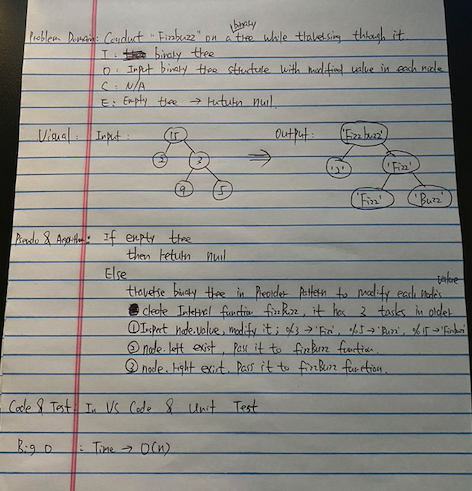 binary
Problem Domain: Conduct "Fizzbuzz" on a tree while traversing through it.
I: binary tree
O: Input binary tree structure with modified value in each node
C: N/A
E: Empty tree → return null.
Visual: Input: Output:
15 'Fizzbuzz'
2 3 ⇒ '2' 'Fizz'
9 5 'Fizz' 'Buzz'
Pseudo & Algorithm: If empty tree
then return null
Else
value
traverse binary tree in Preorder Pattern to modify each node's
create Internal function fizzBuzz, it has 3 tasks in order
① Input node.value, modify it; %3 → 'Fizz', %5 → 'Buzz', %15 → 'Fizzbuzz'
② node.left exist, pass it to fizzBuzz function.
③ node.right exist, pass it to fizzBuzz function.
Code & Test: In VS Code & Unit Test
Big O : Time → O(n)